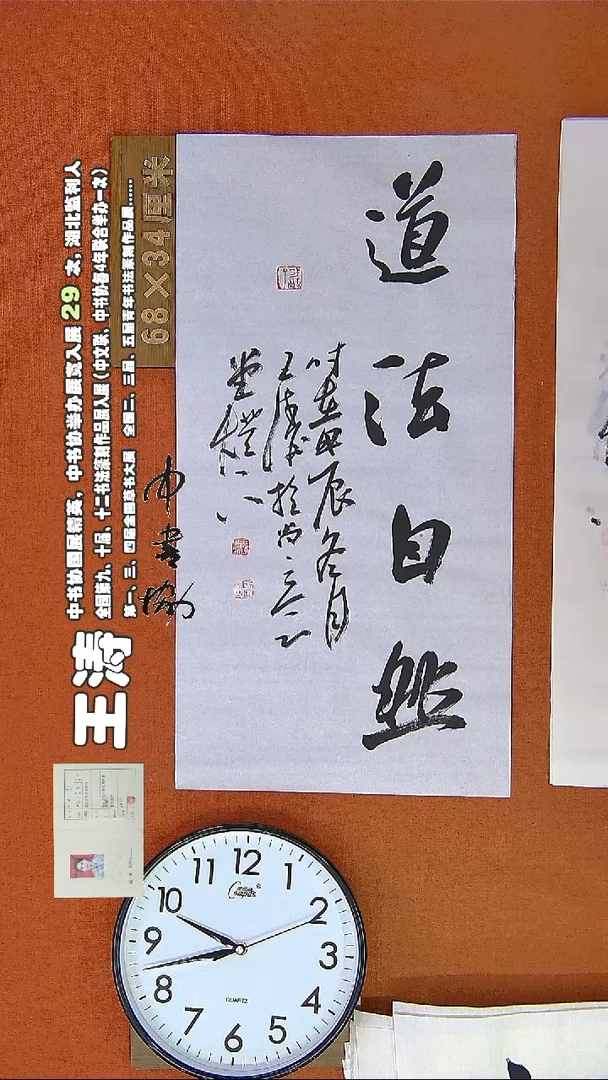 道法自然
时在甲辰冬月
王涛於尚三立
堂
中书协
68×34厘米
中书协国展精英，中书协举办展览入展 29 次，湖北监利人
全国第九、十届、十二书法篆刻作品展入展（中文联、中书协每4年联合举办一次）
第一、三、四届全国草书大展 全国二、三届、五届青年书法篆刻作品展……
王涛
12
1
2
3
4
5
6
7
8
9
10
11
QUARTZ